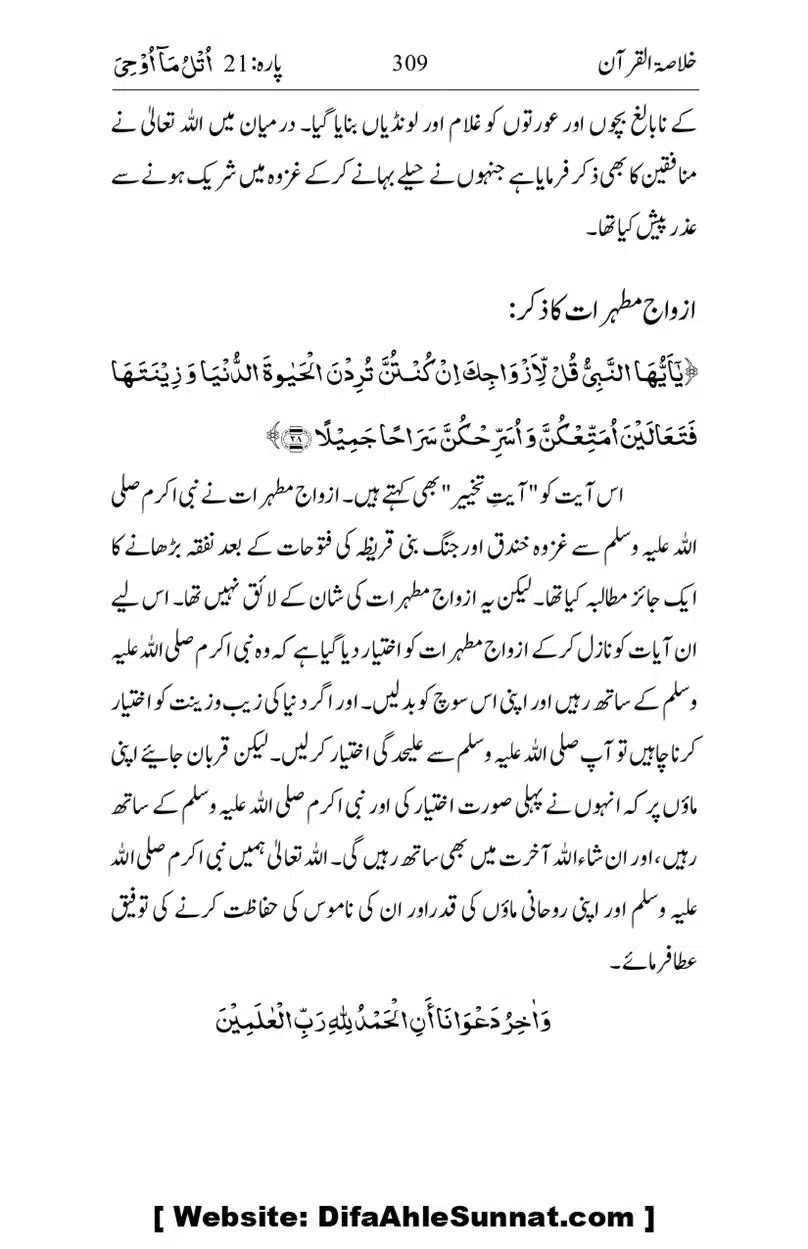 خلاصۃ القرآن 309 پارہ:21 اُتْلُ مَآ اُوْحِیَ
کے نابالغ بچوں اور عورتوں کو غلام اور لونڈیاں بنایا گیا۔ درمیان میں اللہ تعالیٰ نے
منافقین کا بھی ذکر فرمایا ہے جنہوں نے حیلے بہانے کر کے غزوہ میں شریک ہونے سے
عذر پیش کیا تھا۔
ازواج مطہرات کا ذکر:
﴿یٰۤاَیُّهَا النَّبِیُّ قُلْ لِّاَزْوَاجِكَ اِنْ كُنْـتُنَّ تُرِدْنَ الْحَیٰوةَ الدُّنْیَا وَ زِیْنَتَهَا
فَتَعَالَیْنَ اُمَتِّعْكُنَّ وَ اُسَرِّحْكُنَّ سَرَاحًا جَمِیْلًا ﴿۲۸﴾﴾
اس آیت کو "آیتِ تخییر" بھی کہتے ہیں۔ ازواج مطہرات نے نبی اکرم صلی
اللہ علیہ وسلم سے غزوہ خندق اور جنگ بنی قریظہ کی فتوحات کے بعد نفقہ بڑھانے کا
ایک جائز مطالبہ کیا تھا۔ لیکن یہ ازواج مطہرات کی شان کے لائق نہیں تھا۔ اس لیے
ان آیات کو نازل کر کے ازواج مطہرات کو اختیار دیا گیا ہے کہ وہ نبی اکرم صلی اللہ علیہ
وسلم کے ساتھ رہیں اور اپنی اس سوچ کو بدلیں۔ اور اگر دنیا کی زیب و زینت کو اختیار
کرنا چاہیں تو آپ صلی اللہ علیہ وسلم سے علیحدگی اختیار کر لیں۔ لیکن قربان جایئے اپنی
ماؤں پر کہ انہوں نے پہلی صورت اختیار کی اور نبی اکرم صلی اللہ علیہ وسلم کے ساتھ
رہیں، اور ان شاء اللہ آخرت میں بھی ساتھ رہیں گی۔ اللہ تعالیٰ ہمیں نبی اکرم صلی اللہ
علیہ وسلم اور اپنی روحانی ماؤں کی قدر اور ان کی ناموس کی حفاظت کرنے کی توفیق
عطا فرمائے۔
وَاٰخِرُ دَعْوَانَا أَنِ الْحَمْدُ لِلّٰهِ رَبِّ الْعٰلَمِیْنَ
[ Website: DifaAhleSunnat.com ]